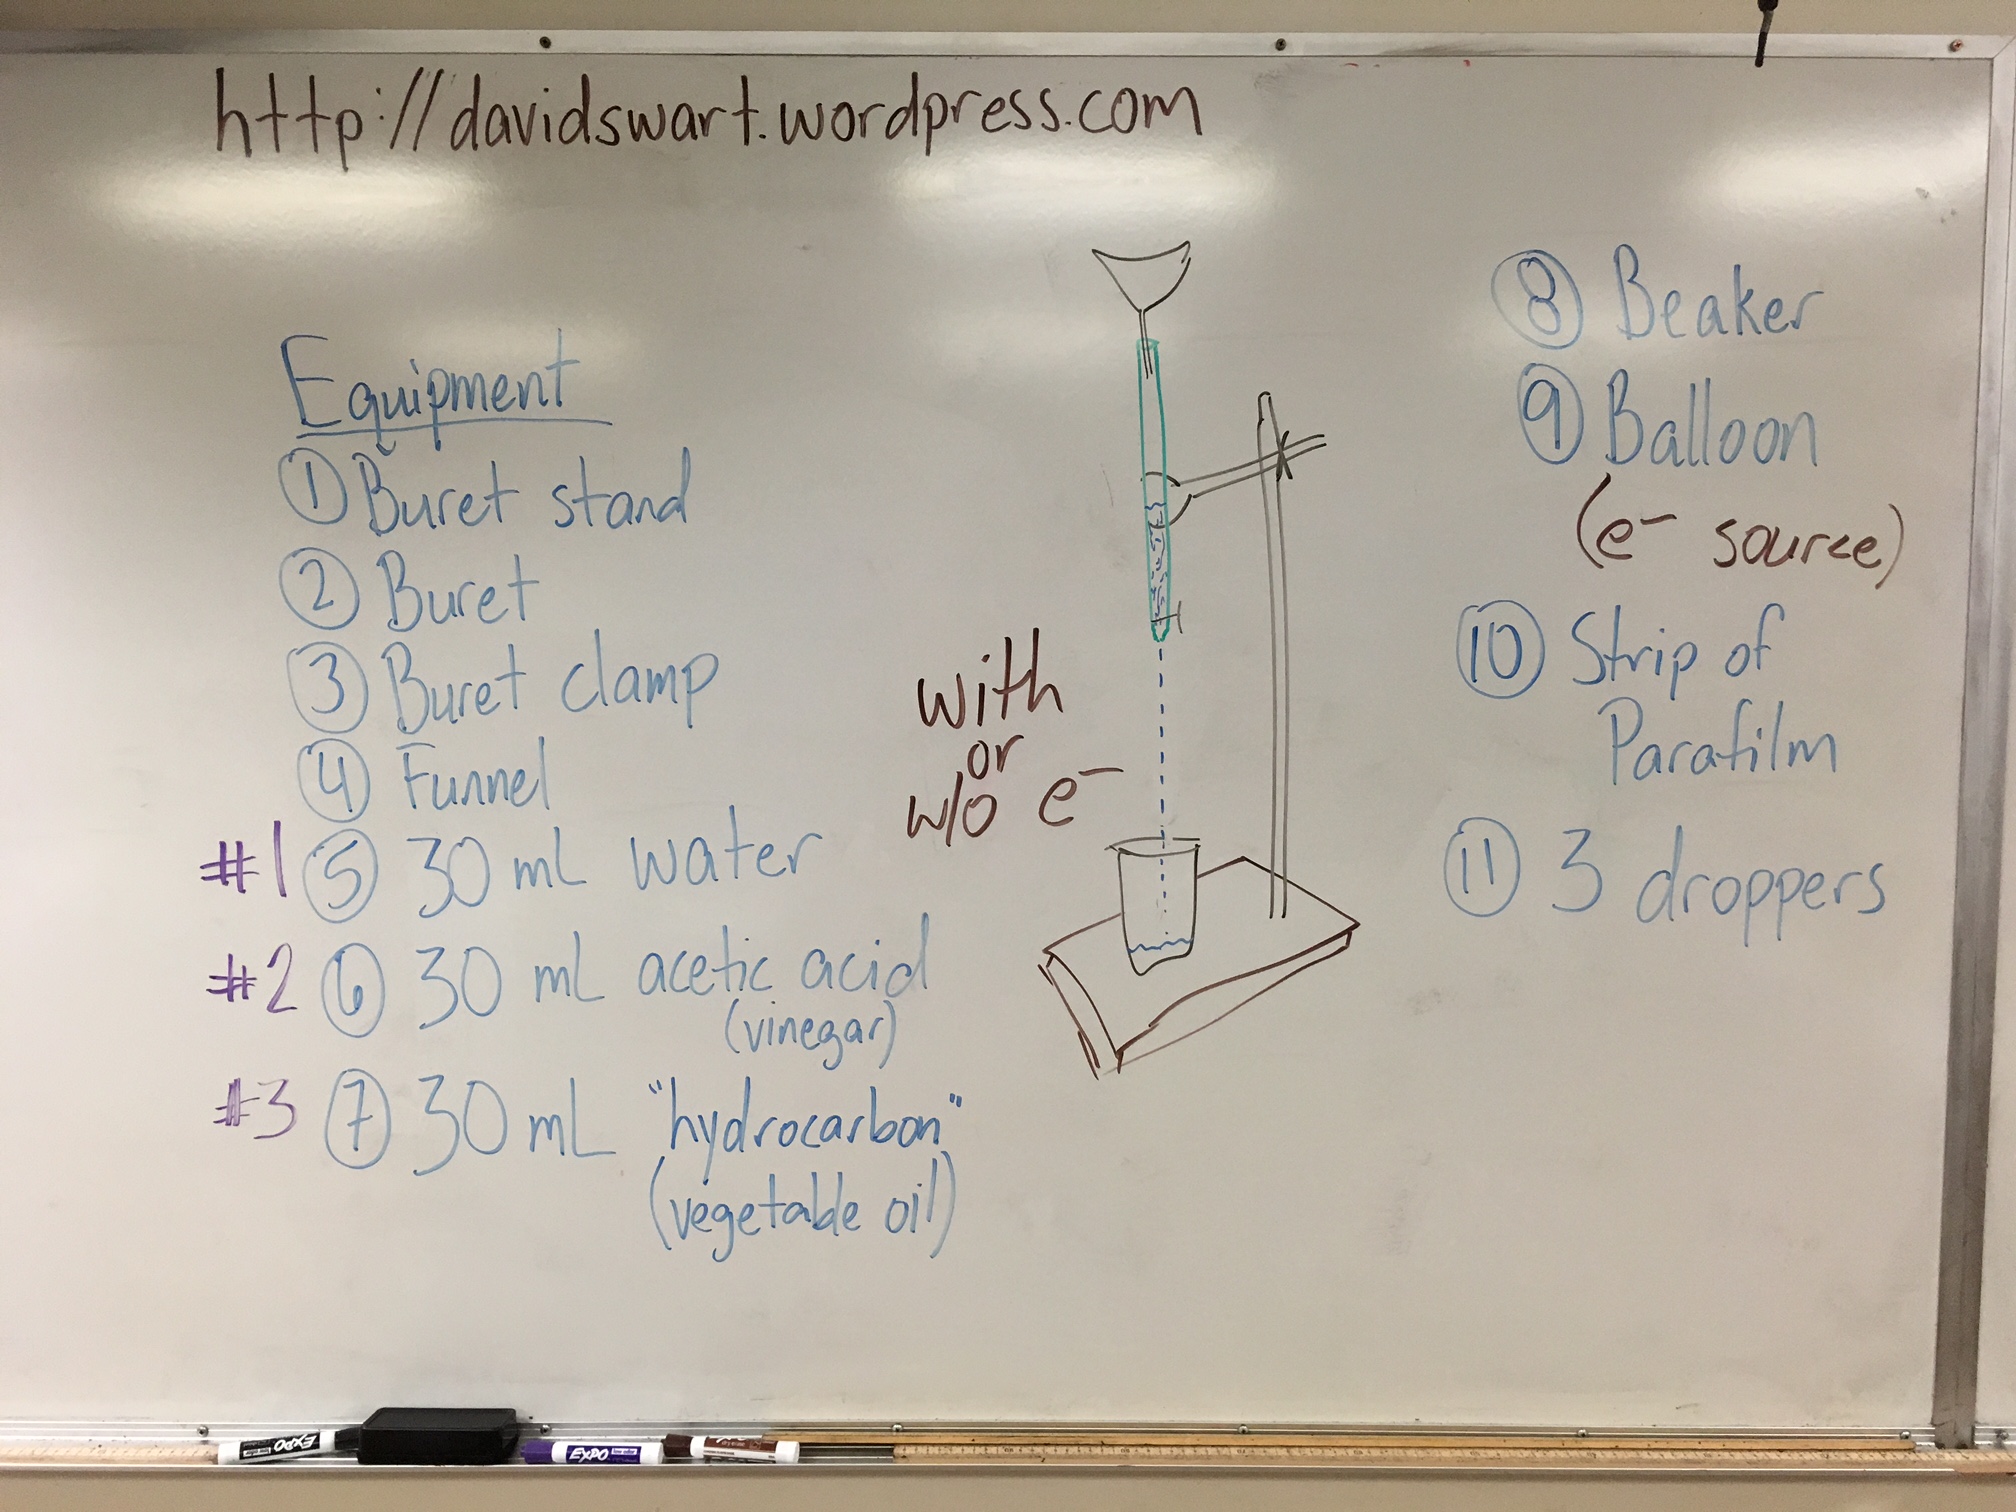 http://davidswart.wordpress.com
Equipment
① Buret stand
② Buret
③ Buret clamp
④ Funnel
#1 ⑤ 30 mL water
#2 ⑥ 30 mL acetic acid
(vinegar)
#3 ⑦ 30 mL "hydrocarbon"
(vegetable oil)
with
or
w/o e⁻
⑧ Beaker
⑨ Balloon
(e⁻ source)
⑩ Strip of
Parafilm
⑪ 3 droppers
EXPO
EXPO